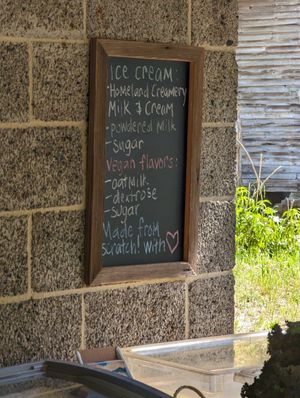 Ice cream:
*Homeland Creamery
Milk & Cream
- powdered milk
- sugar
Vegan flavors:
- oatmilk
- dextrose
- sugar
Made from
scratch! with ♡